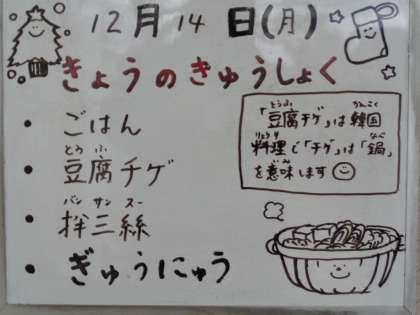 12月14日(月)
きょうのきゅうしょく
・ごはん
・豆腐チゲ
とうふ
・拌三絲
バンサンスー
・ぎゅうにゅう
「豆腐チゲ」は韓国
とうふ かんこく
料理で「チゲ」は「鍋」
りょうり なべ
を意味します
いみ